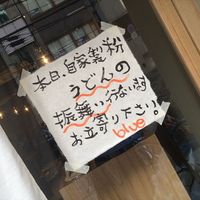 本日、自家製粉
うどんの
振舞い行ないます
お立寄り下さい。
blue